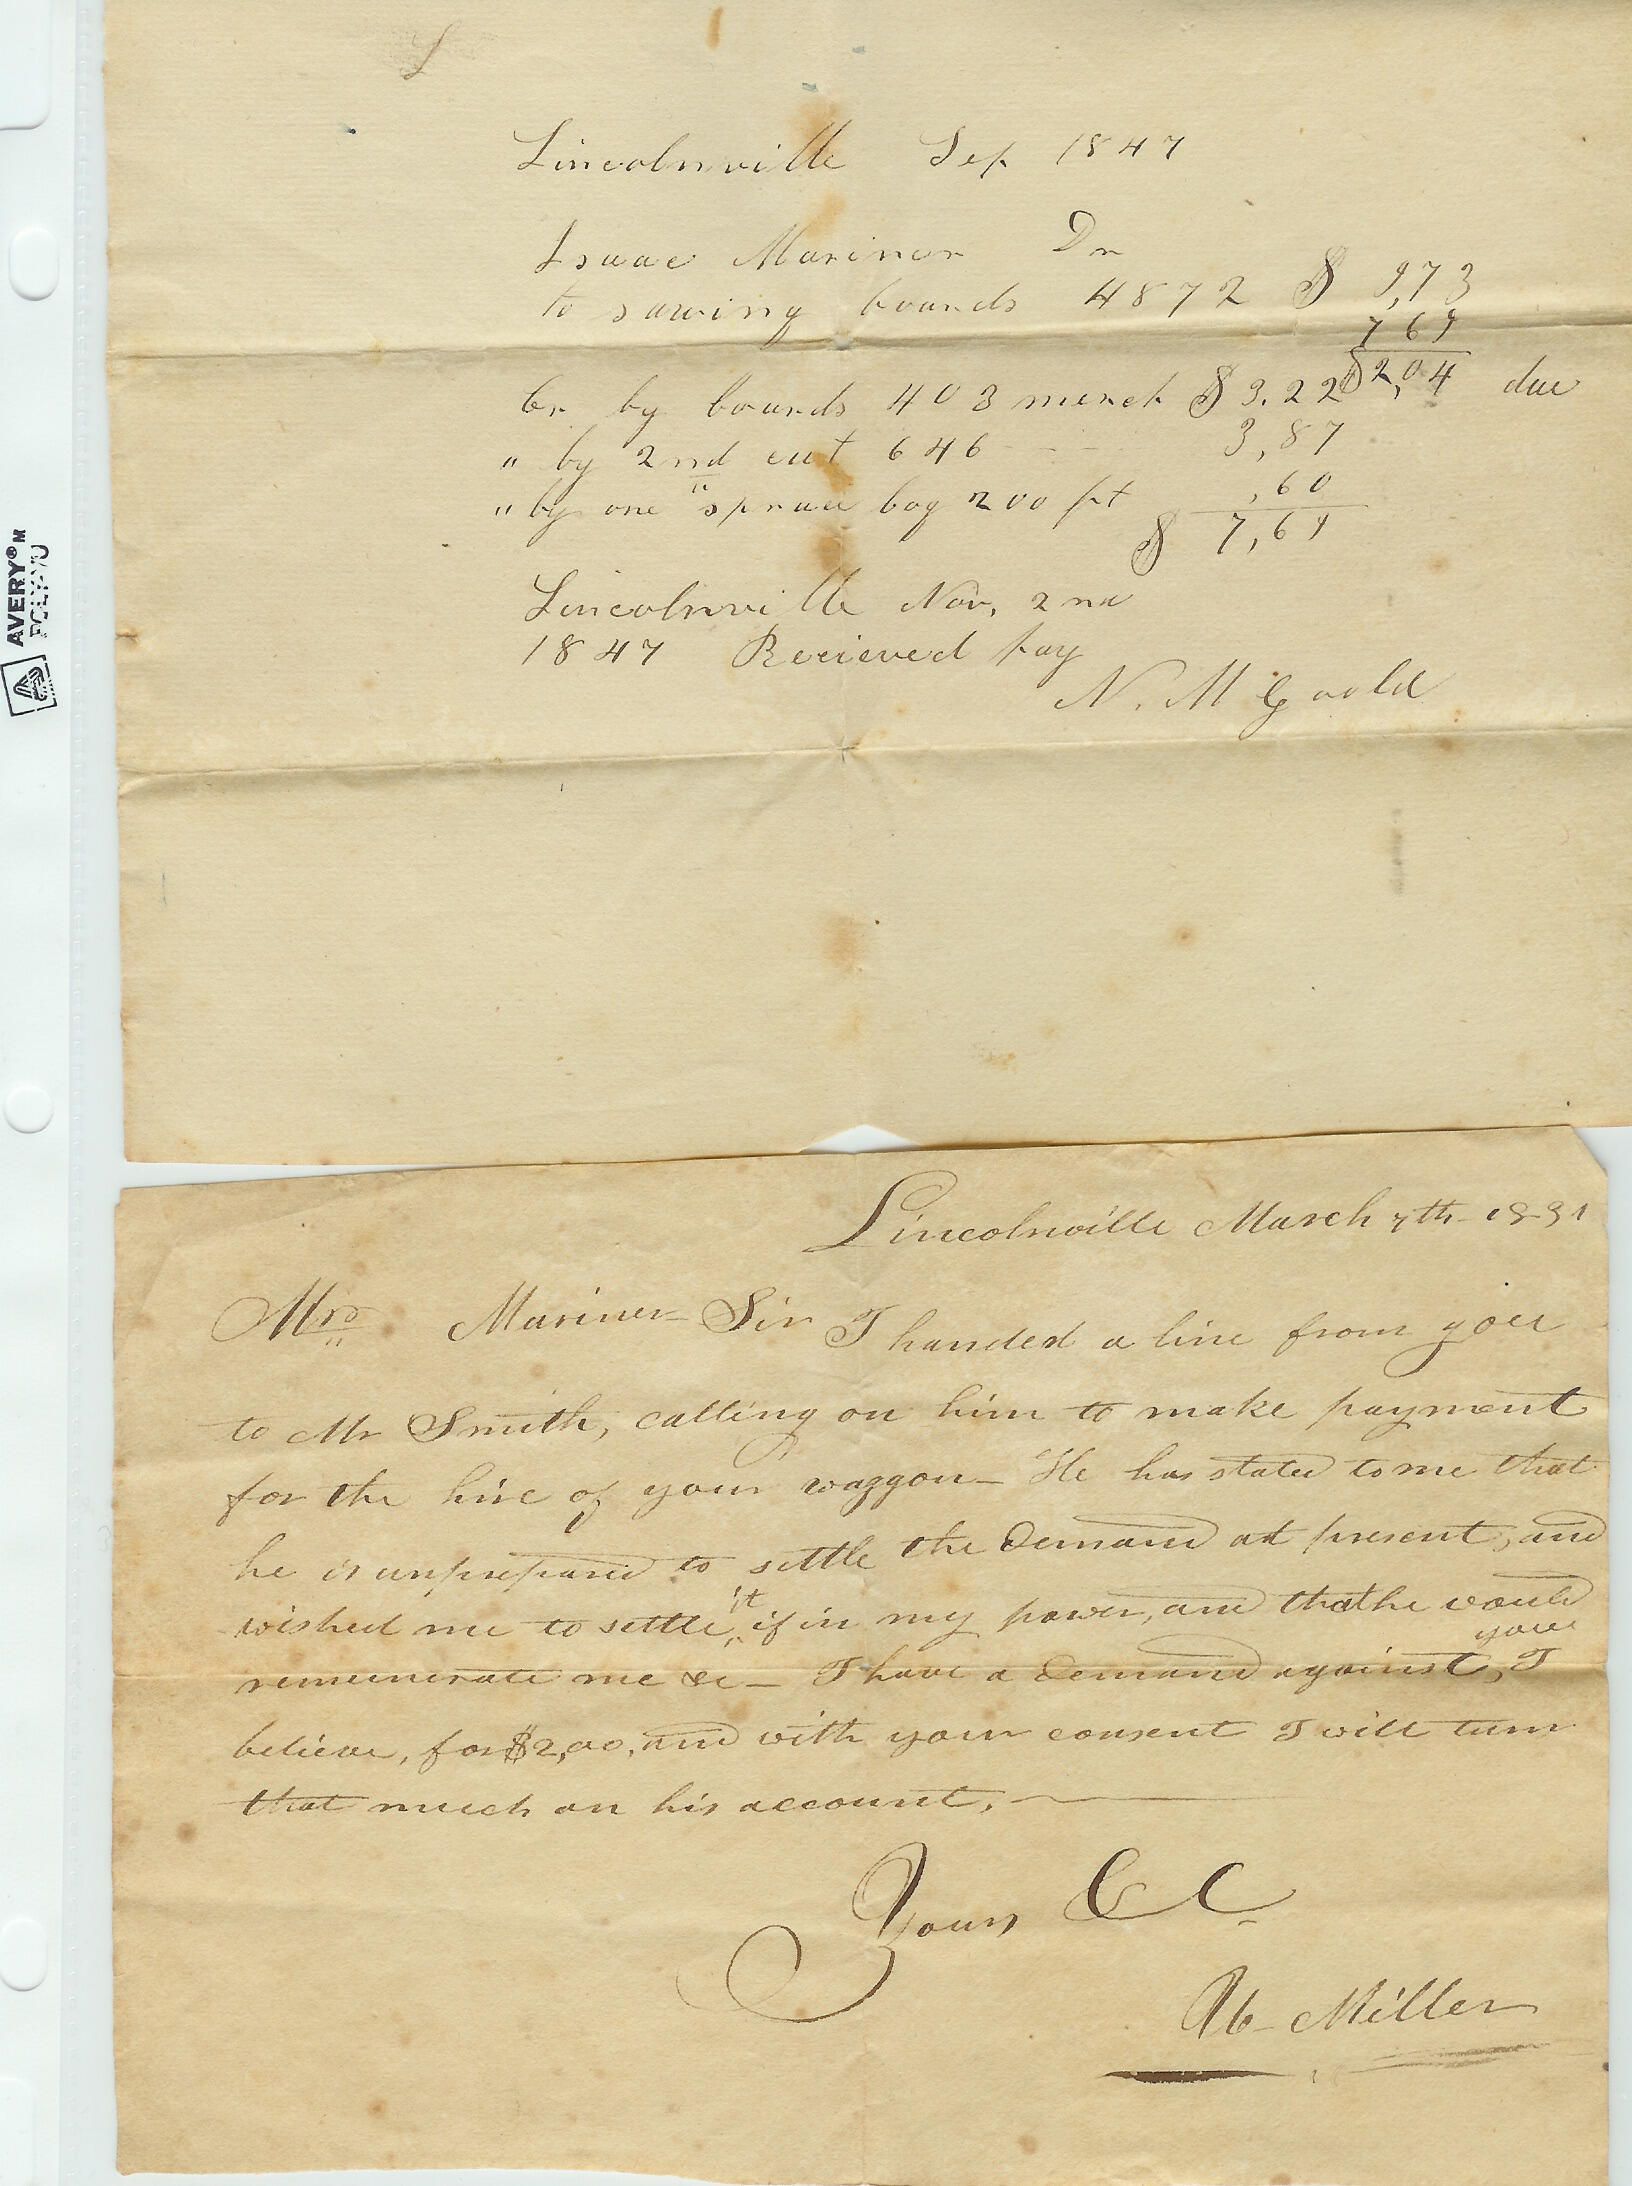 Lincolnville Sep 1847
Isaac Mariner Dr
to sawing boards 4872 $ 9,73
7 69
Cr by boards 403 merch $ 3.22 $2,04 due
" by 2nd cut 646 - - 3,87
" by one spruce log 200 ft ,60
$ 7,69
Lincolnville Nov, 2nd
1847 Recieved pay
N. M Goold
AVERY®
Lincolnville March 7th - 1831
Mariner - Sir I handed a line from you
to Mr Smith, calling on him to make payment
for the hire of your waggon - He has stated to me that
he is unprepared to settle the demand at present, and
wished me to settle it, if in my power, and that he would
remunerate me &c - I have a demand against you, I
believe, for $2,00, and with your consent I will turn
that much on his account. -
Yours &C
Miller